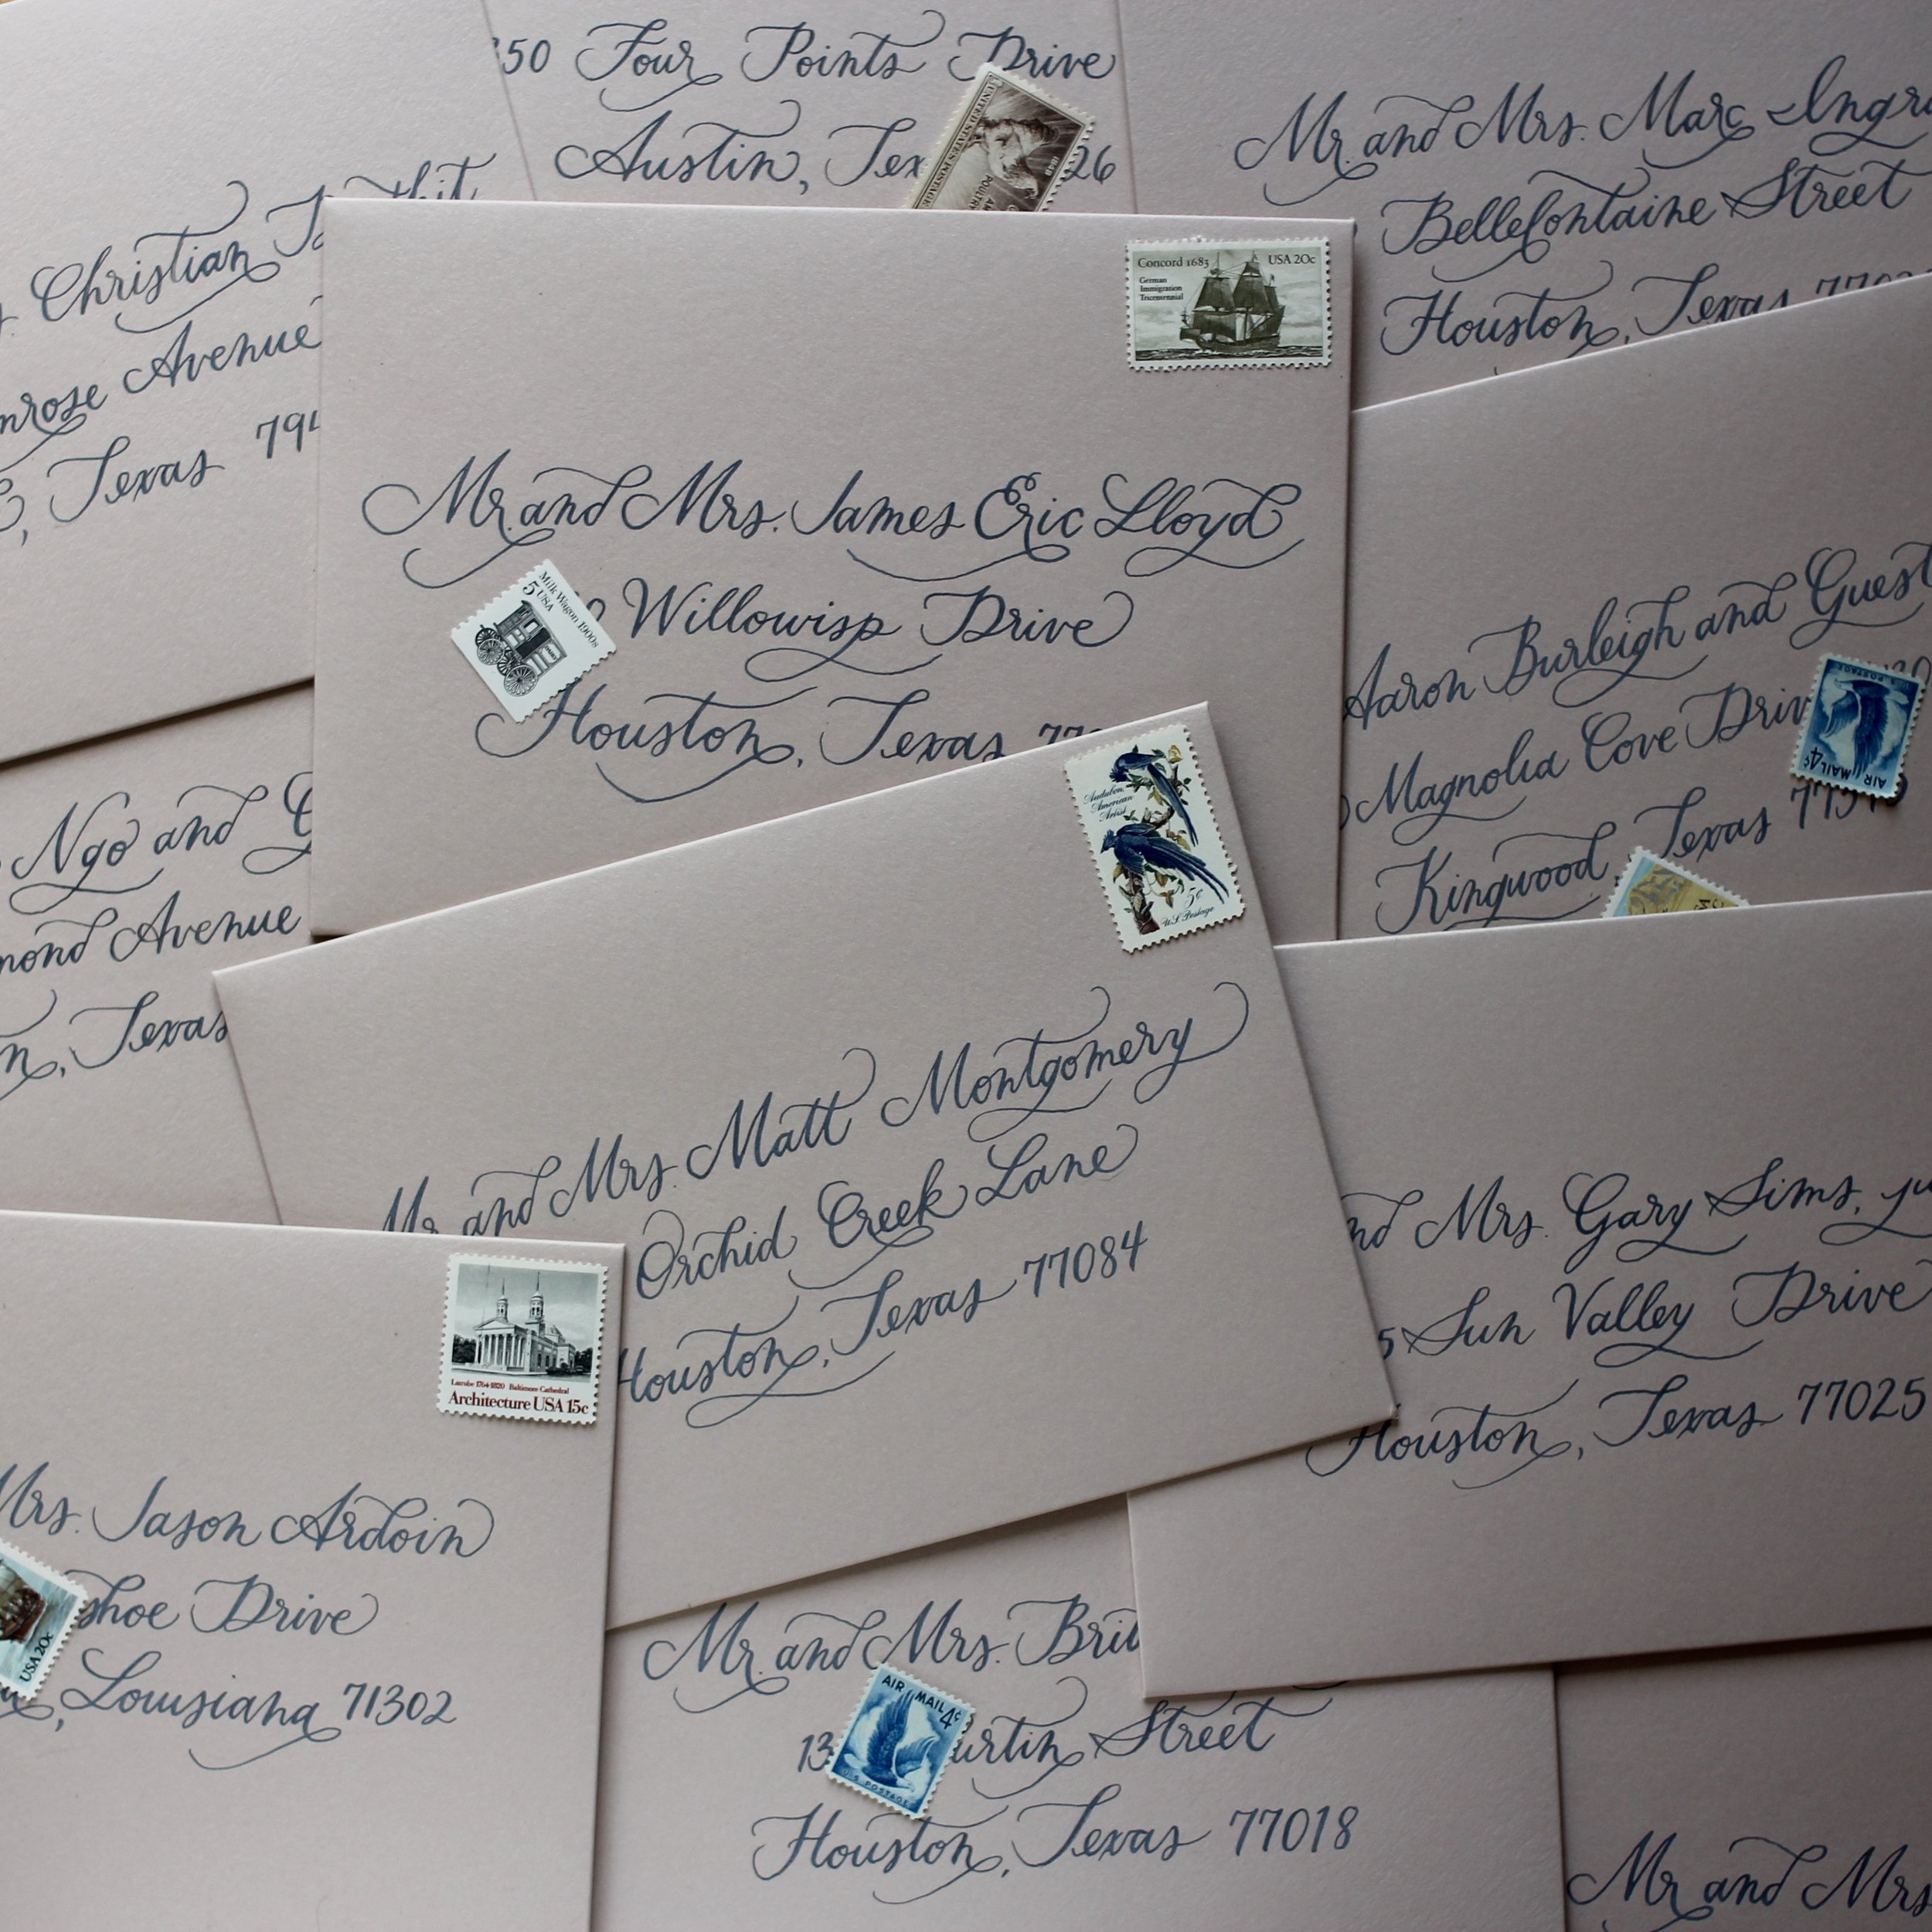 50 Four Points Drive
Austin,
UNITED STATES POSTAGE
POULTRY
Mr. and Mrs. Marc
Bellefontaine Street
Houston, Texas
Christian
Avenue
Texas
Concord 1683 USA 20c
German
Immigration
Tricentennial
Mr. and Mrs. James Eric Lloyd
Willowisp Drive
Houston, Texas
Milk Wagon 1900s
5 USA
Aaron Burleigh and Guest
Magnolia Cove
Kingwood Texas
U.S. POSTAGE
AIR MAIL 4¢
Ngo and
Avenue
Texas
Audubon
American
Artist
5¢
U.S. Postage
Mr. and Mrs. Matt Montgomery
Orchid Creek Lane
Houston, Texas 77084
and Mrs. Gary Sims,
5 Sun Valley Drive
Houston, Texas 77025
Latrobe 1764-1820 Baltimore Cathedral
Architecture USA 15c
Mrs. Jason Ardoin
Drive
Louisiana 71302
USA 20c
Mr. and Mrs.
13 Street
Houston, Texas 77018
AIR MAIL 4¢
U.S. POSTAGE
Mr. and Mrs